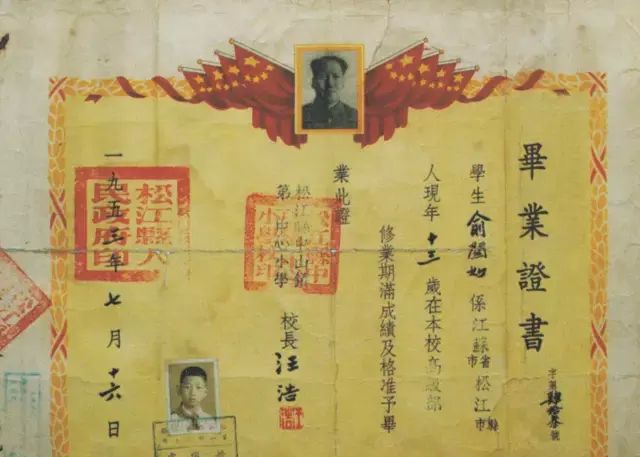 畢業證書
字第肆拾叁號
學生俞 如係江蘇省市松江縣市
人現年十三歲在本校高級部
修業期滿成績及格准予畢
業此證
松江縣中山鎮
第一中心小學
校長汪浩
一九五三年七月十六日
松江縣人民政府印